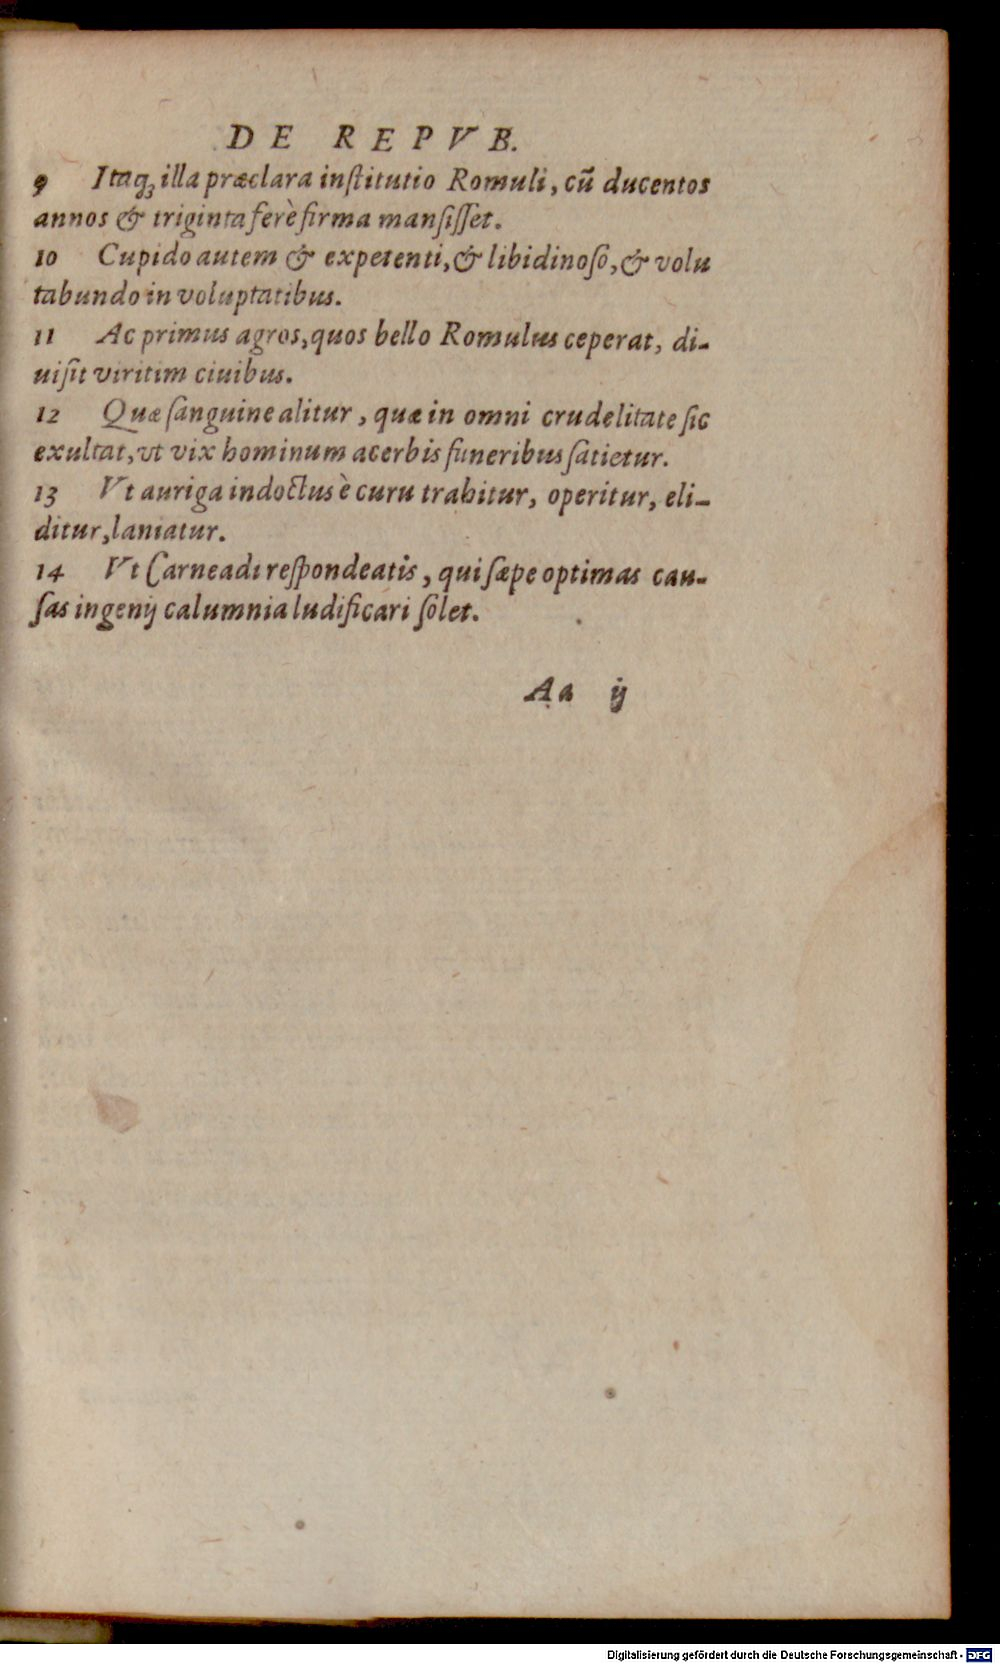 DE REPVB.
9 Itaq; illa præclara institutio Romuli, cũ ducentos
annos & triginta ferè firma mansisset.
10 Cupido autem & expetenti, & libidinoso, & volu
tabundo in voluptatibus.
11 Ac primus agros, quos bello Romulus ceperat, di-
uisit viritim ciuibus.
12 Quæ sanguine alitur, quæ in omni crudelitate sic
exultat, vt vix hominum acerbis funeribus satietur.
13 Vt auriga indoctus è curu trahitur, operitur, eli-
ditur, laniatur.
14 Vt Carneadi respondeatis, qui sæpe optimas cau-
sas ingenij calumnia ludificari solet.
Aa ij
Digitalisierung gefördert durch die Deutsche Forschungsgemeinschaft - DFG